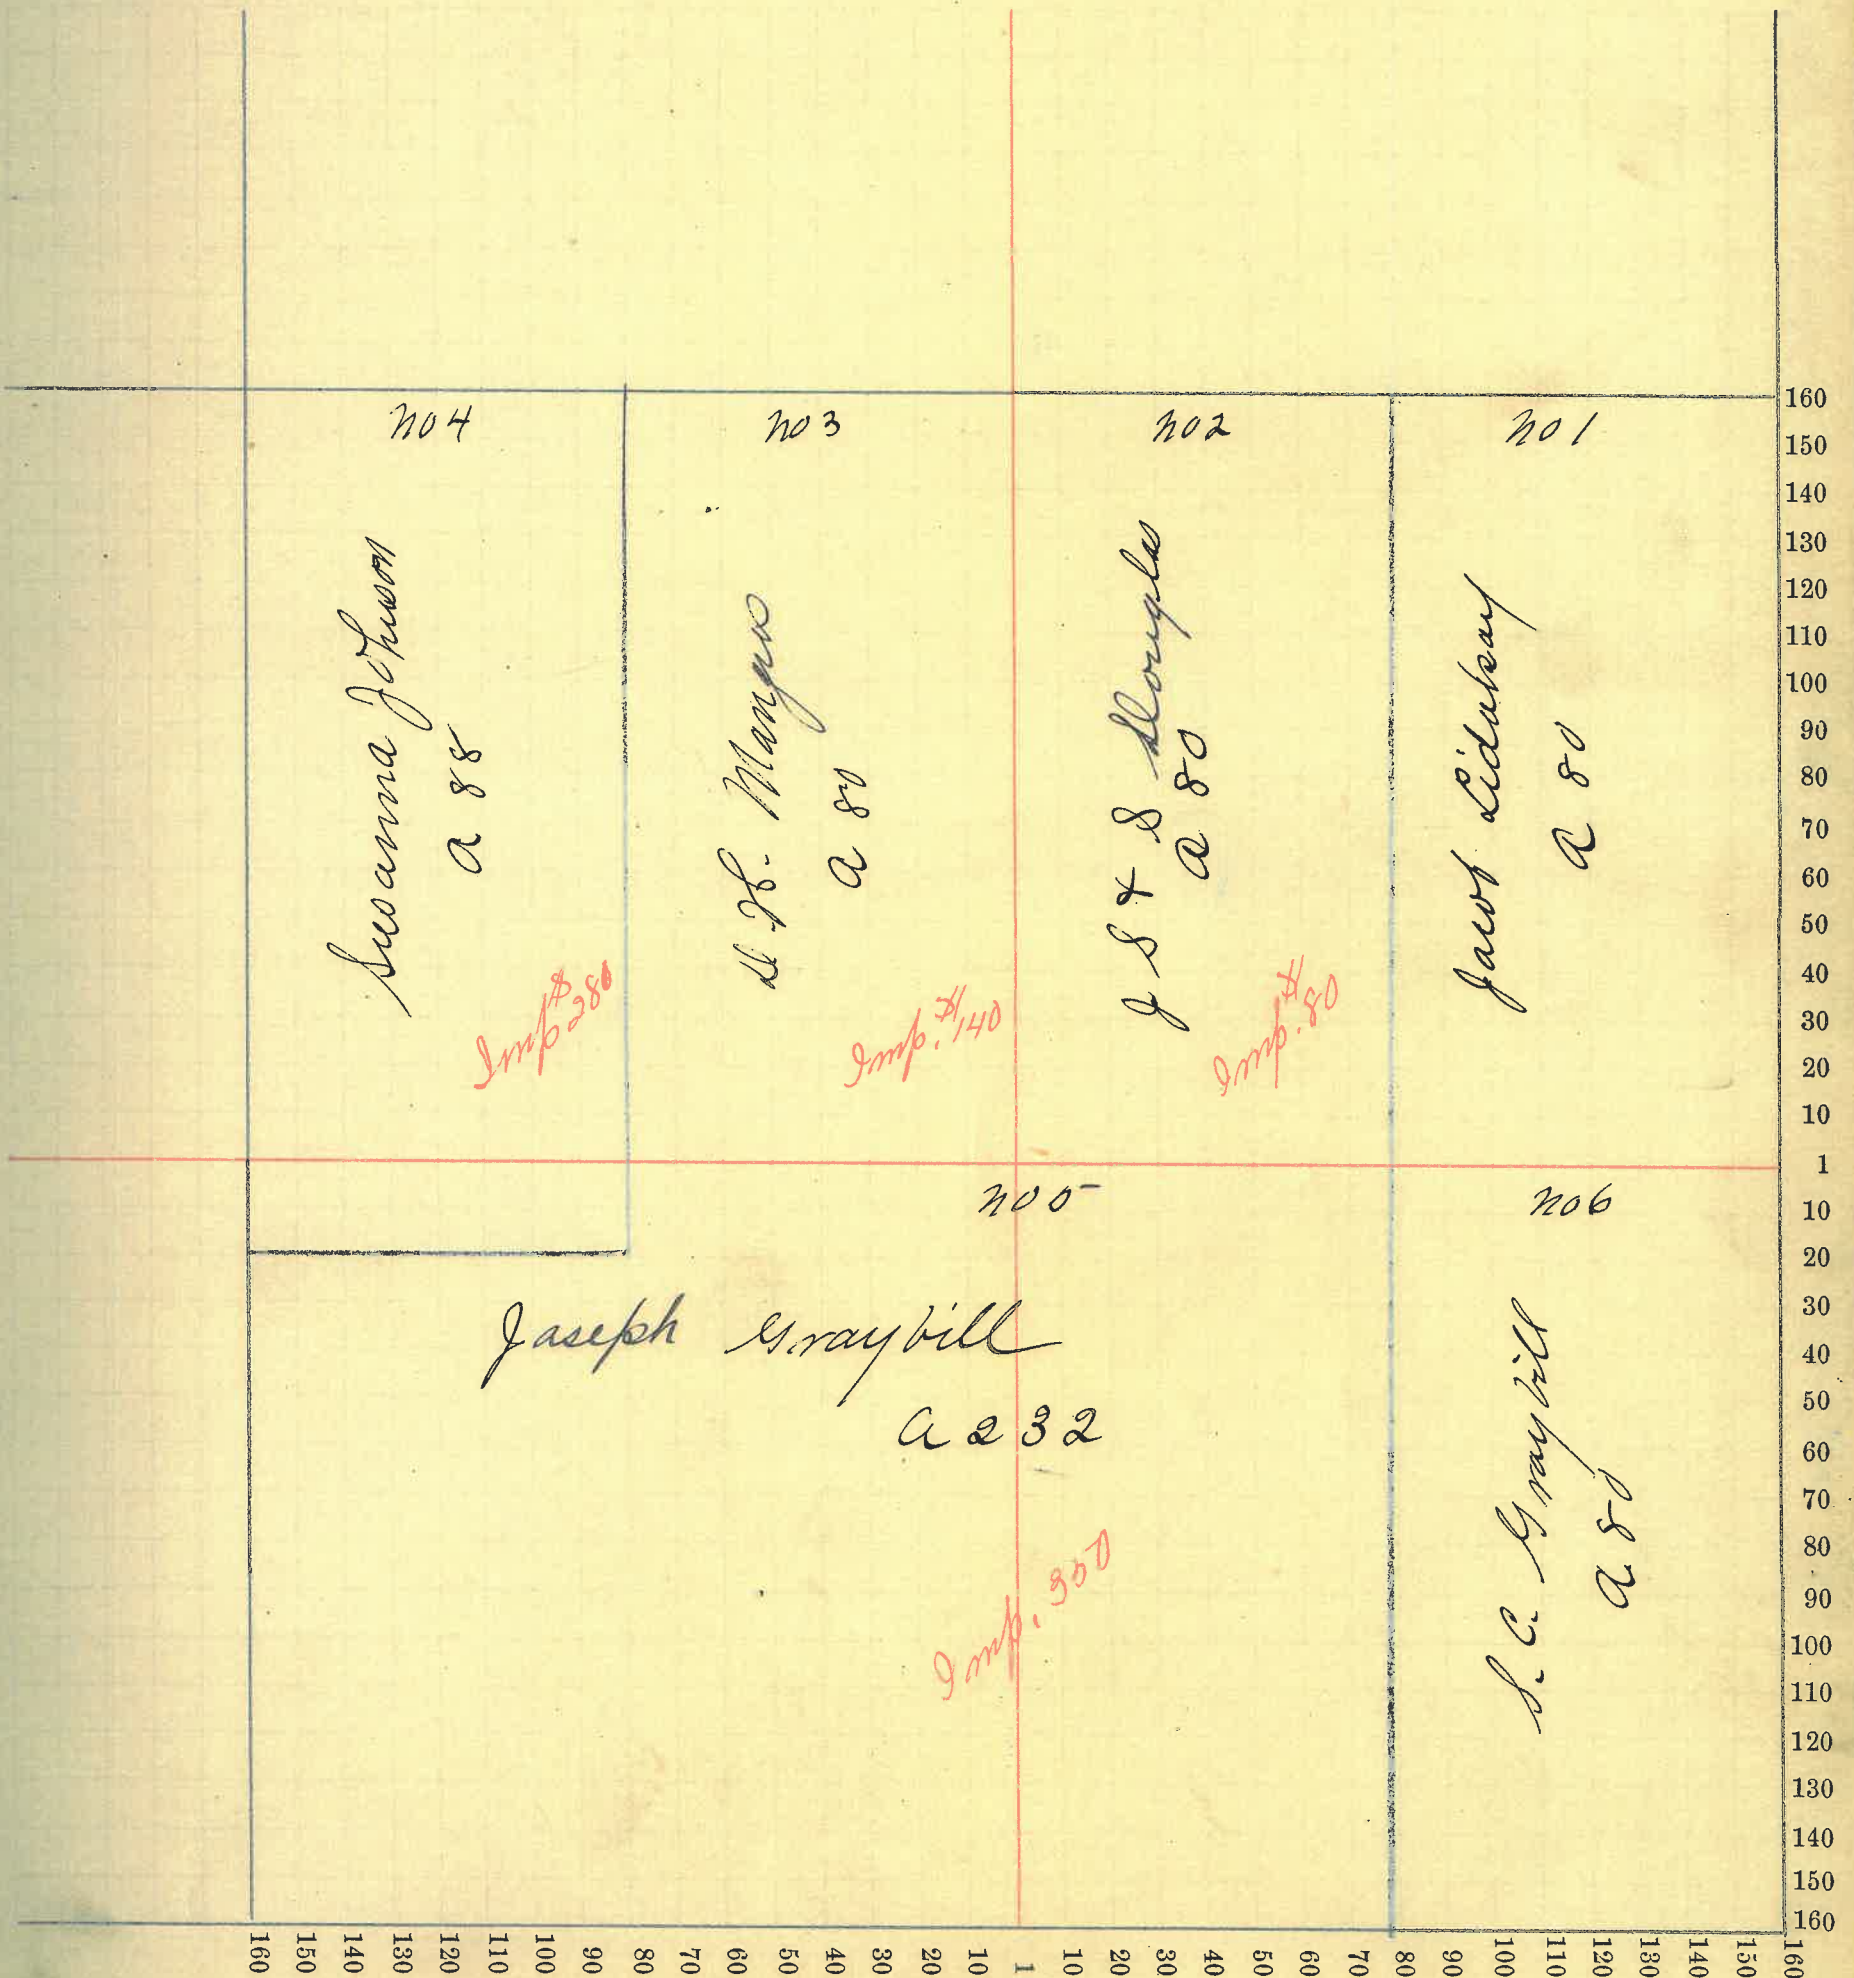 no 4
Susanna Johnson
A 88
Imp $280
no 3
A 80
Imp. $140
no 2
J S & S Douglas
A 80
Imp. $80
no 1
Jacob
A 80
no 5
Joseph Graybill
A 232
Imp. 300
no 6
S. C. Graybill
A. 80
160
150
140
130
120
110
100
90
80
70
60
50
40
30
20
10
1
10
20
30
40
50
60
70
80
90
100
110
120
130
140
150
160
160 150 140 130 120 110 100 90 80 70 60 50 40 30 20 10 1 10 20 30 40 50 60 70 80 90 100 110 120 130 140 150 160